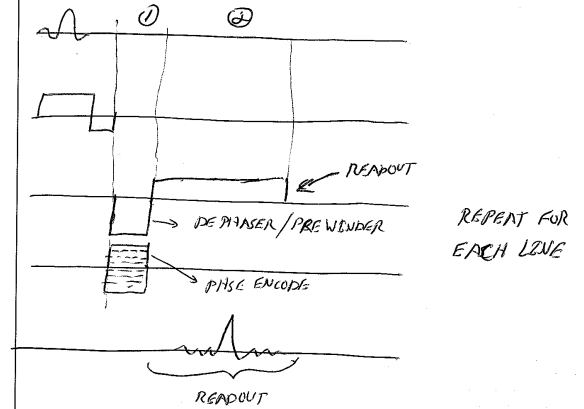 ① ②
READOUT
DEPHASER/PREWINDER
REPEAT FOR
EACH LINE
PHSE ENCODE
READOUT